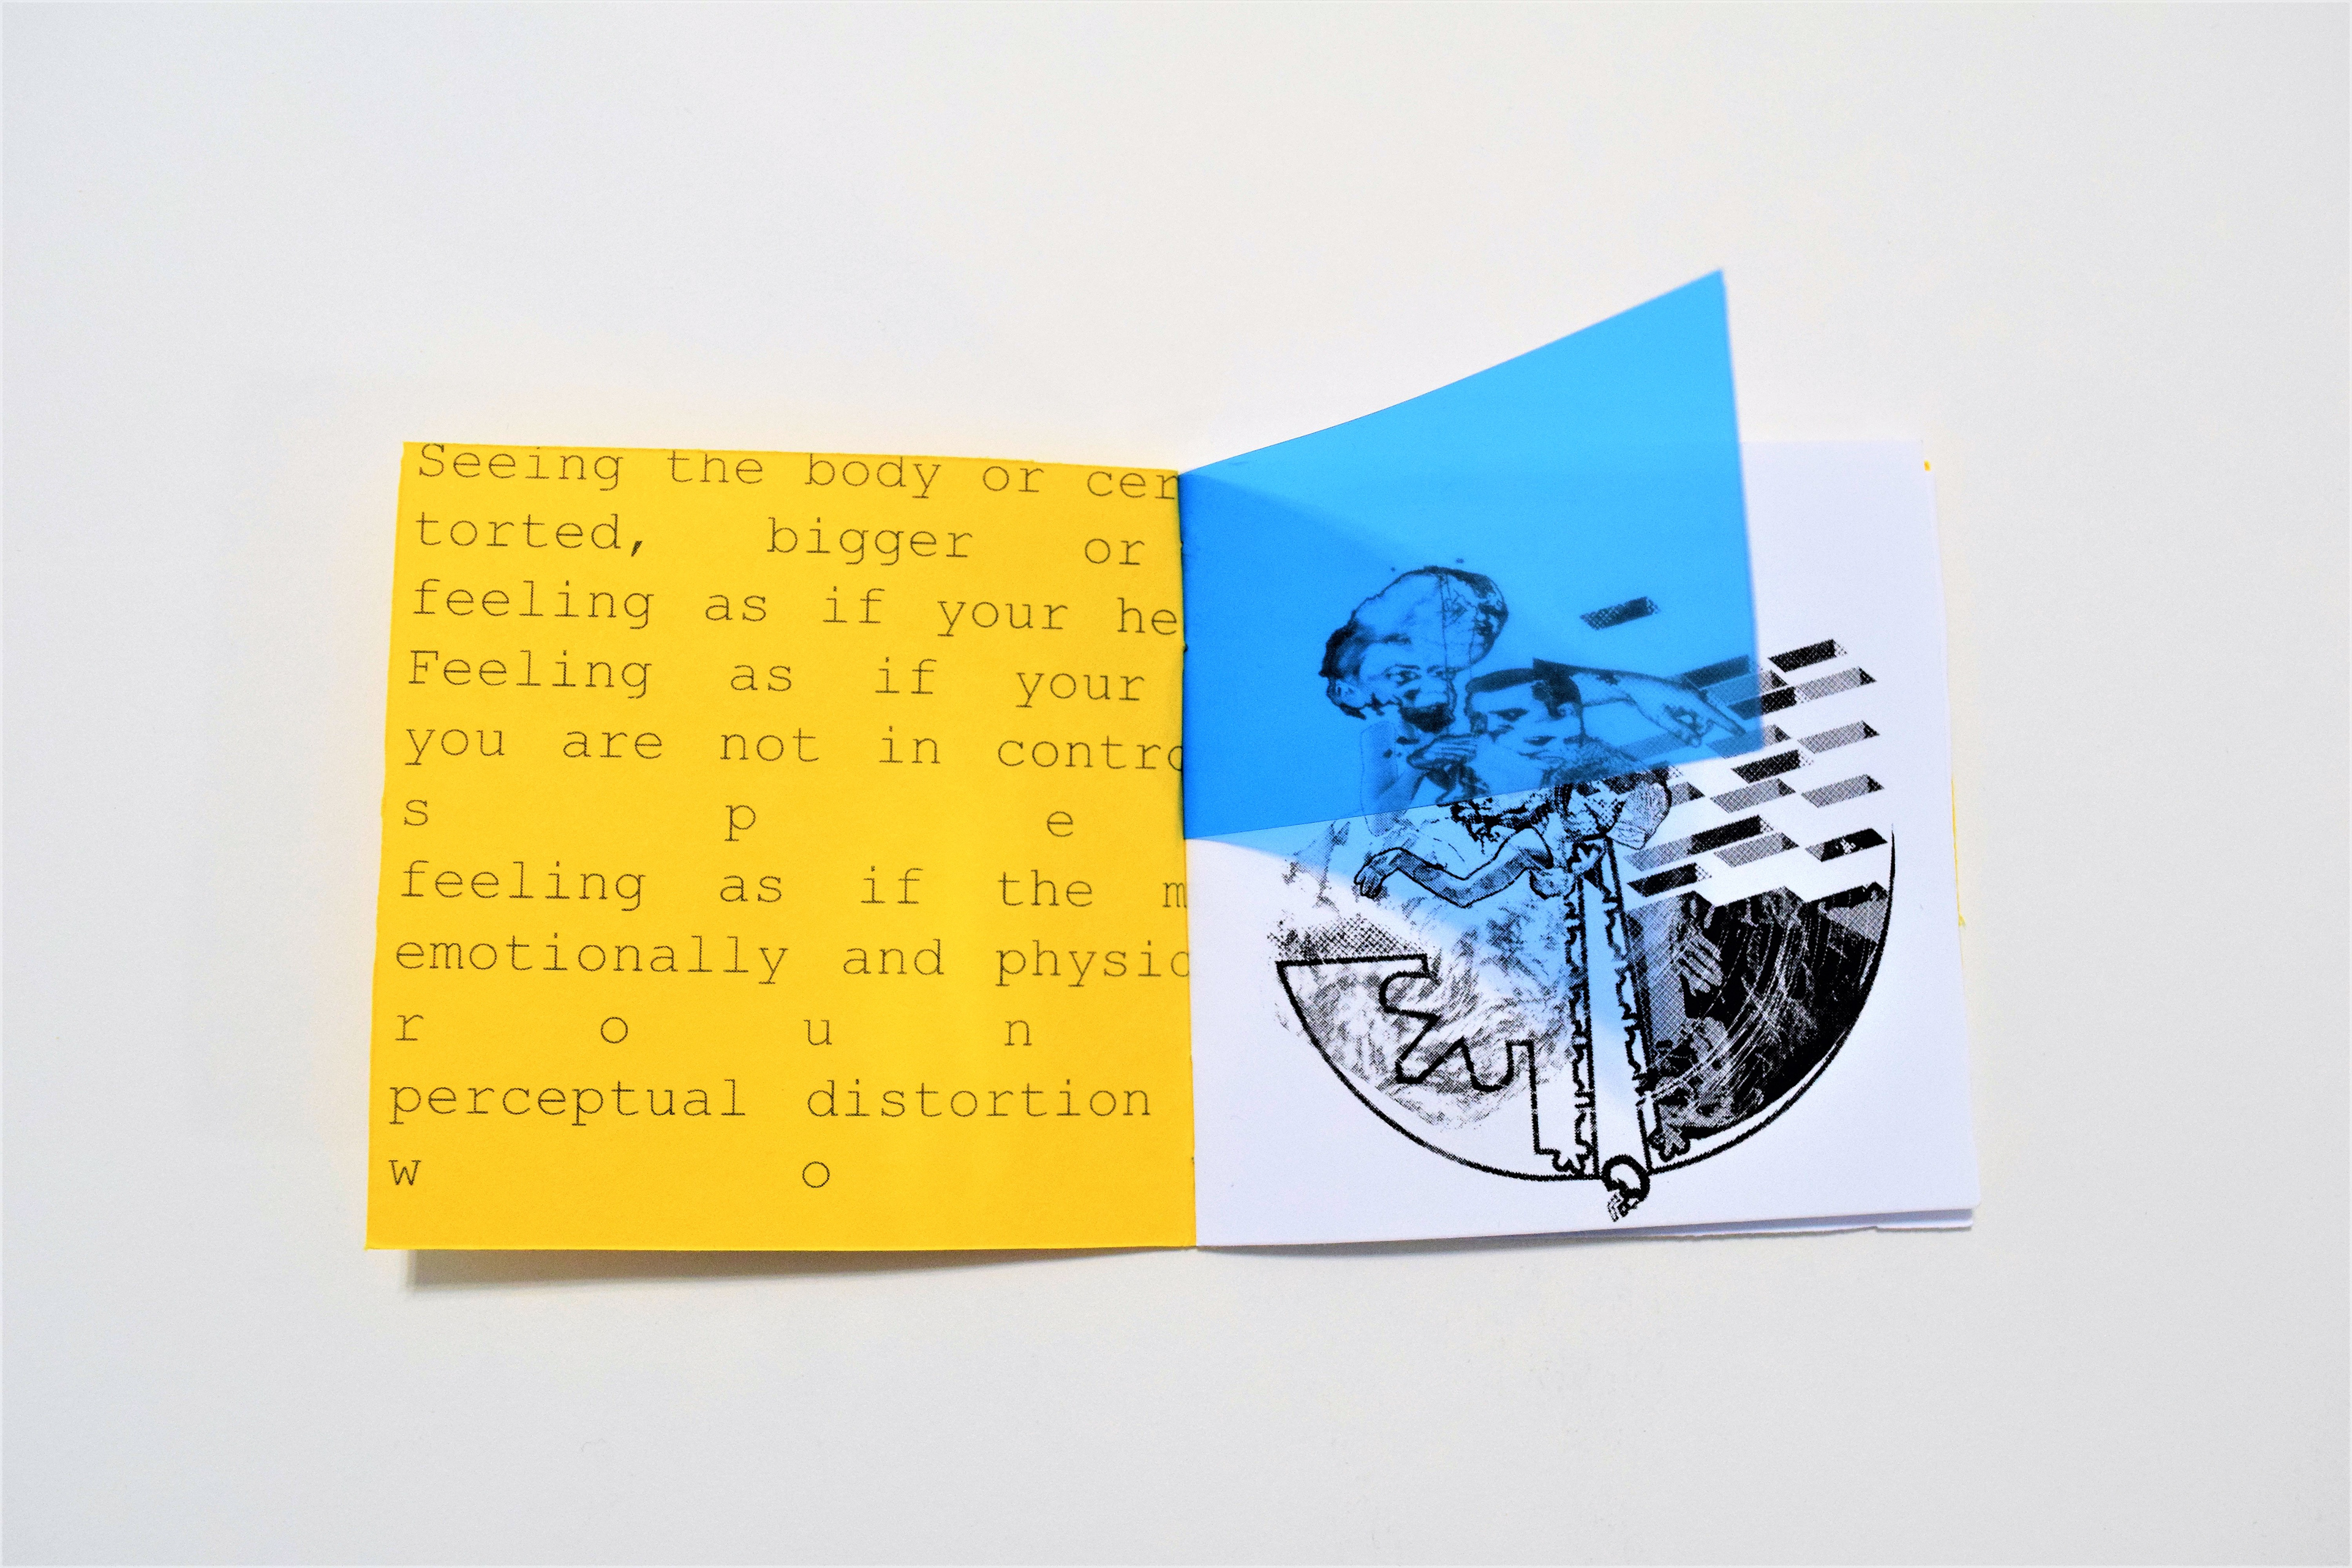 Seeing the body or cer
torted, bigger or
feeling as if your he
Feeling as if your
you are not in contro
s p e
feeling as if the m
emotionally and physic
r o u n
perceptual distortion
w o